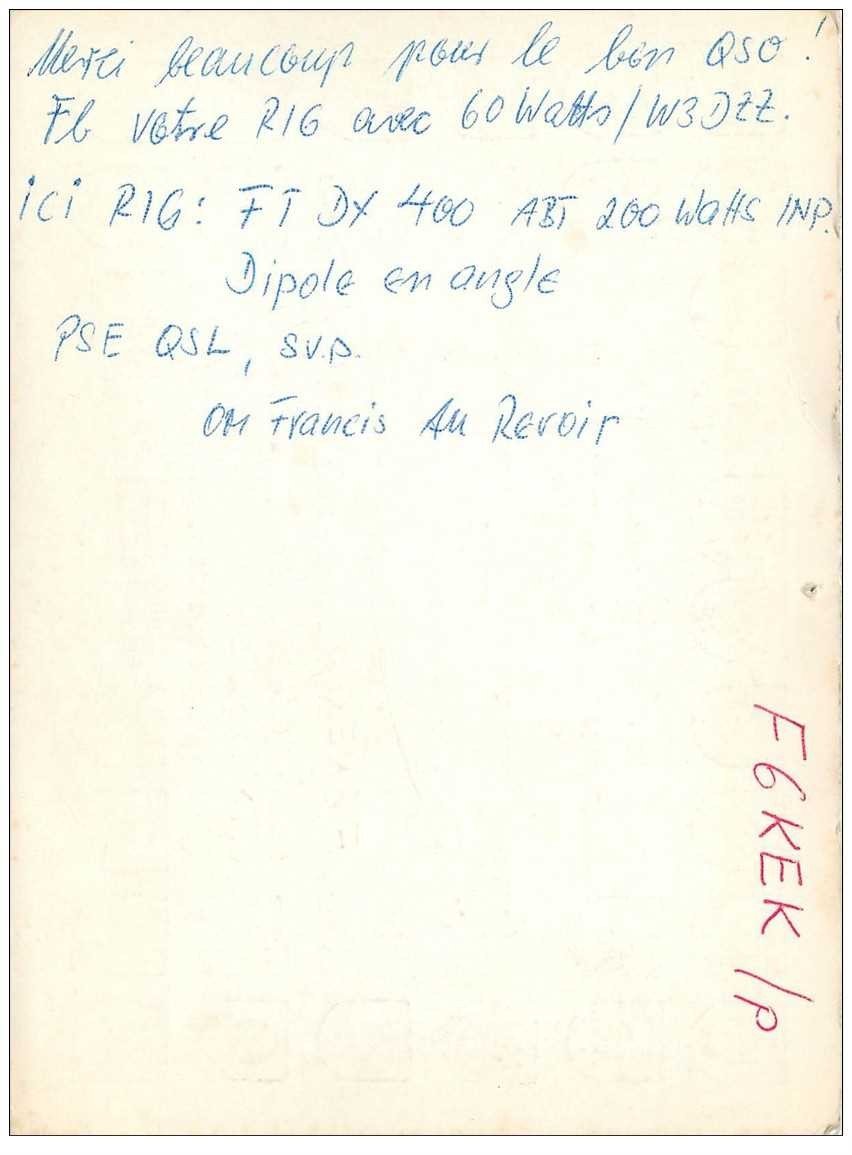 Merci beaucoup pour le bon QSO!
Fb votre RIG avec 60 Watts/W3DZZ.
ici RIG: FT DX 400 ABT 200 Watts INP.
Dipole en angle
PSE QSL, s.v.p.
OM Francis Au Revoir
F6KEK/p